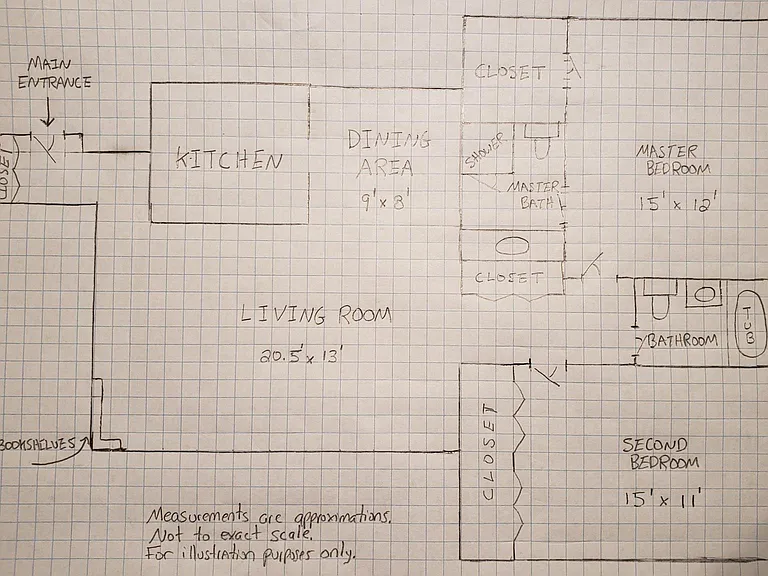 MAIN
ENTRANCE
CLOSET
KITCHEN
DINING
AREA
9' x 8'
CLOSET
SHOWER
MASTER
BATH
CLOSET
MASTER
BEDROOM
15' x 12'
LIVING ROOM
20.5' x 13'
BATHROOM
TUB
BOOKSHELVES
CLOSET
SECOND
BEDROOM
15' x 11'
Measurements are approximations.
Not to exact scale.
For illustration purposes only.